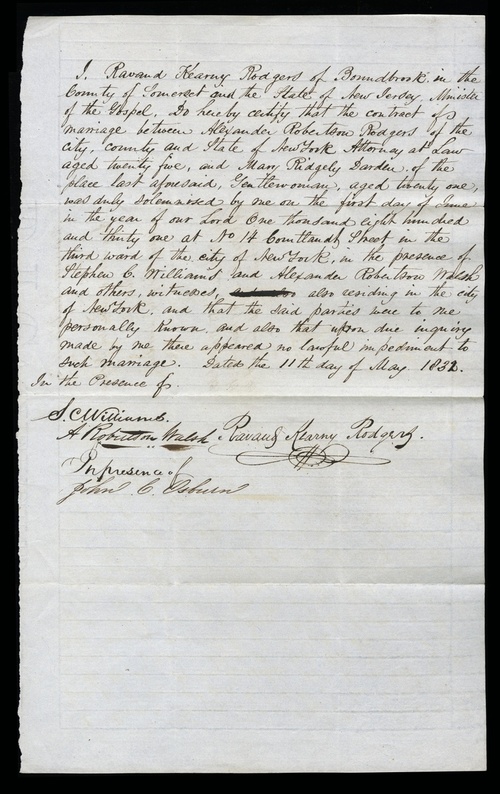 I, Ravaud Kearny Rodgers of Boundbrook in the
County of Somerset and the State of New Jersey, Minister
of the Gospel, Do hereby certify that the contract of
marriage between Alexander Robertson Rodgers of the
city, county and State of New York Attorney at Law
aged twenty five, and Mary Ridgely Darden, of the
place last aforesaid, Gentlewoman, aged twenty one,
was duly solemnised by me on the first day of June
in the year of our Lord One thousand eight hundred
and thirty one at No 14 Courtlandt Street in the
third ward of the city of New York, in the presence of
Stephen C. Williams and Alexander Robertson Walsh
and others, witnesses, also residing in the city
of New York, and that the said parties were to me
personally known, and also that upon due inquiry
made by me there appeared no lawful impediment to
such marriage. Dated the 11th day of May 1832.
In the Presence of
S. C. Williams.
A Robertson Walsh Ravaud Kearny Rodgers.
In presence of
John C. Osburn